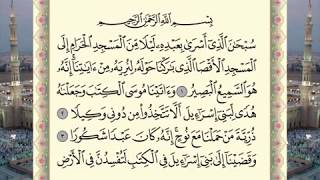 بِسْمِ ٱللَّهِ ٱلرَّحْمَٰنِ ٱلرَّحِيمِ
سُبْحَٰنَ ٱلَّذِىٓ أَسْرَىٰ بِعَبْدِهِۦ لَيْلًا مِّنَ ٱلْمَسْجِدِ ٱلْحَرَامِ إِلَى
ٱلْمَسْجِدِ ٱلْأَقْصَا ٱلَّذِى بَٰرَكْنَا حَوْلَهُۥ لِنُرِيَهُۥ مِنْ ءَايَٰتِنَآ إِنَّهُۥ
هُوَ ٱلسَّمِيعُ ٱلْبَصِيرُ ١ وَءَاتَيْنَا مُوسَى ٱلْكِتَٰبَ وَجَعَلْنَٰهُ
هُدًى لِّبَنِىٓ إِسْرَٰٓءِيلَ أَلَّا تَتَّخِذُوا۟ مِن دُونِى وَكِيلًا ٢
ذُرِّيَّةَ مَنْ حَمَلْنَا مَعَ نُوحٍ إِنَّهُۥ كَانَ عَبْدًا شَكُورًا ٣
وَقَضَيْنَآ إِلَىٰ بَنِىٓ إِسْرَٰٓءِيلَ فِى ٱلْكِتَٰبِ لَتُفْسِدُنَّ فِى ٱلْأَرْضِ